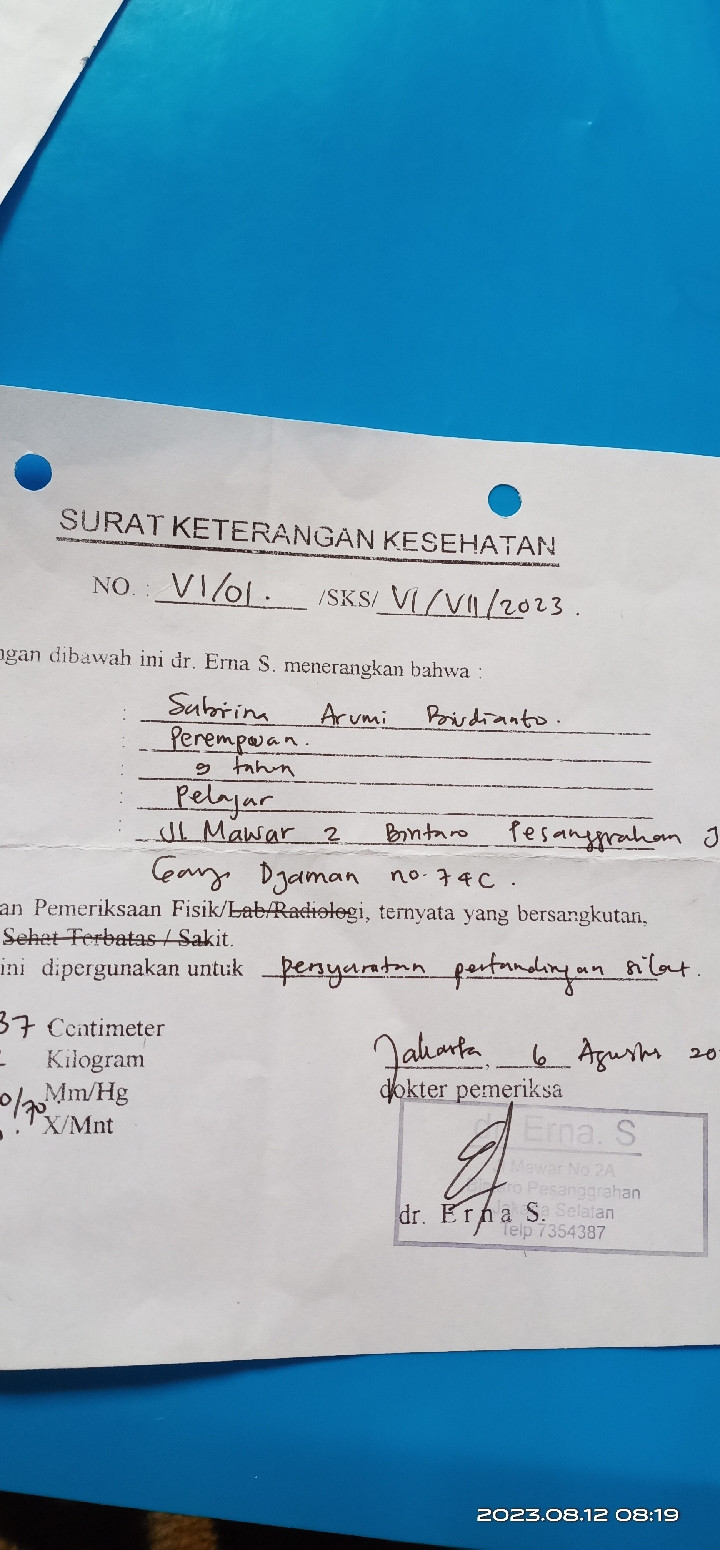 SURAT KETERANGAN KESEHATAN
NO. : VI/01. /SKS/ VI/VII/2023.
ngan dibawah ini dr. Erna S. menerangkan bahwa :
: Sabrina Arumi
: Perempuan.
: 9 tahun
: Pelajar
: Jl Mawar 2 Bintaro Pesanggrahan J
Gang Djaman no. 74C.
an Pemeriksaan Fisik/Lab/Radiologi, ternyata yang bersangkutan,
Sehat Terbatas / Sakit.
ini dipergunakan untuk persyaratan pertandingan silat.
37 Centimeter
Kilogram
Jakarta, 6 Agustus 20
0/70 Mm/Hg
dokter pemeriksa
X/Mnt
dr. Erna. S
Mawar No 2A
Bintaro Pesanggrahan
Jakarta Selatan
Telp 7354387
dr. Erna S.
2023.08.12 08:19